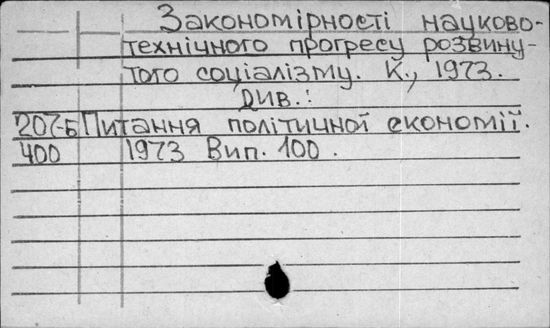 Закономірності науково-
технічного прогресу розвину-
того соціалізму. К., 1973.
Див.:
207-Б Питання політичної економії.
400 1973 Вип. 100.